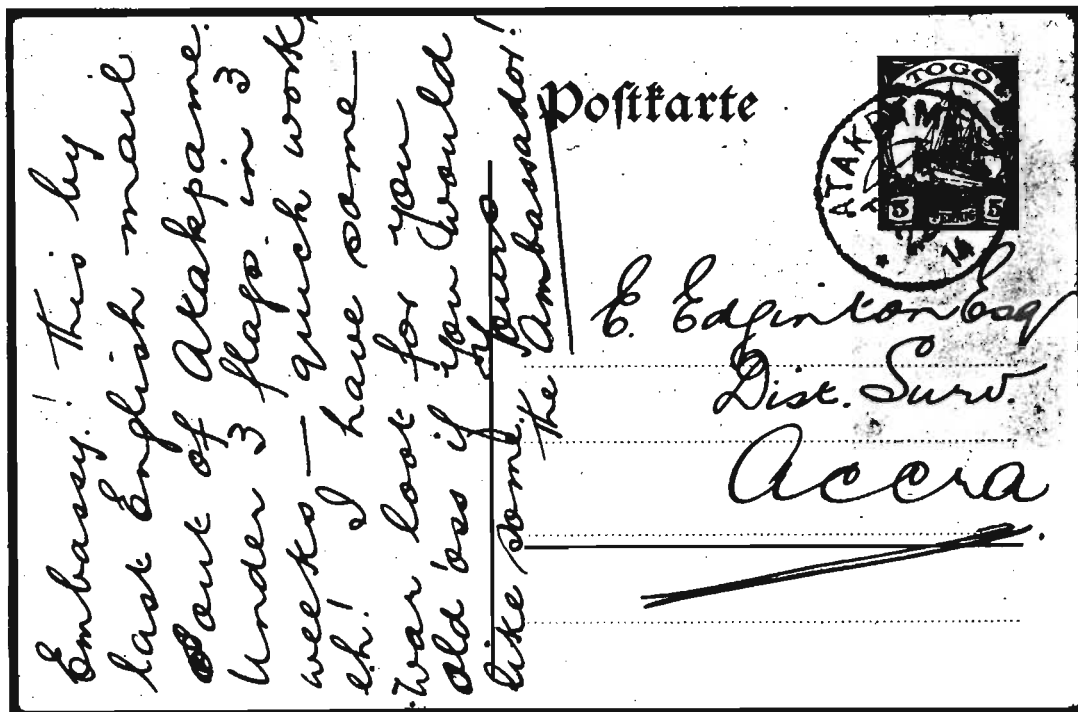 Embassy! This by
last English mail
out of Atakpame.
Under 3 flags in 3
weeks — quick work
eh! I have some
war loot for you
old 'oss if you would
like some. Yours
The Ambassador!
Poſtkarte
TOGO
ATAKPAME
14
5 5
E. Edginton Esq
Dist. Surv.
Accra